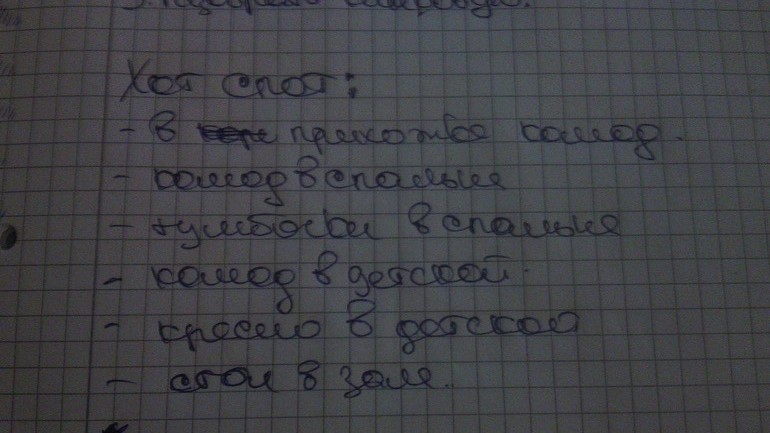 Хот спот:
- В прихожке комод.
- комод в спальне
- тумбочки в спальне
- комод в детской.
- кресло в детской
- стол в зале.